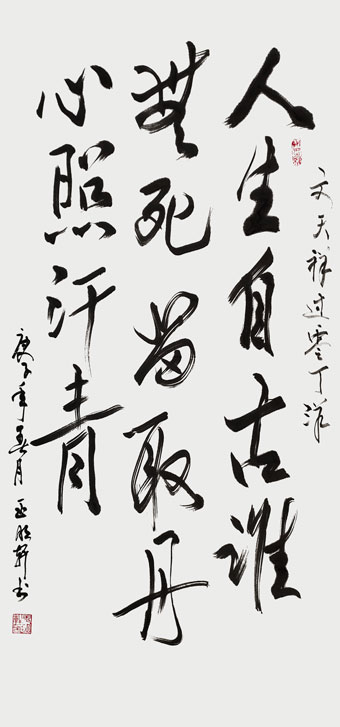 文天祥过零丁洋
人生自古谁
無死留取丹
心照汗青
庚子年春月 轩书